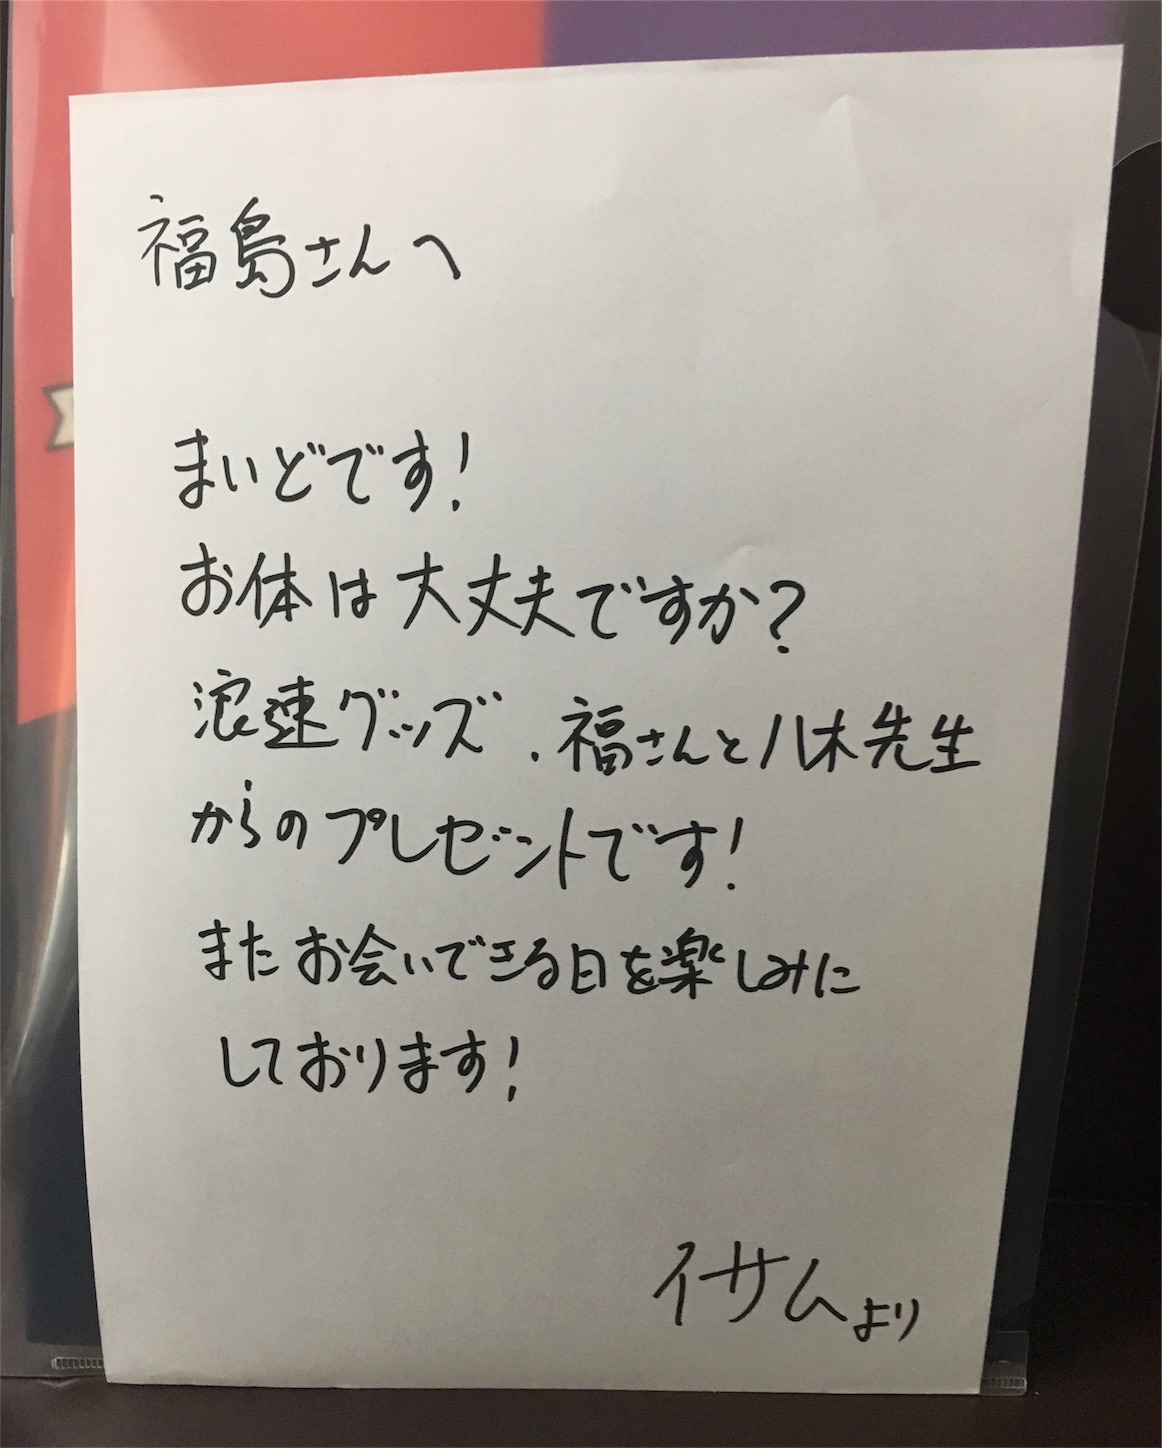 福島さんへ
まいどです!
お体は大丈夫ですか?
浪速グッズ、福さんと八木先生
からのプレゼントです!
またお会いできる日を楽しみに
しております!
イサムより